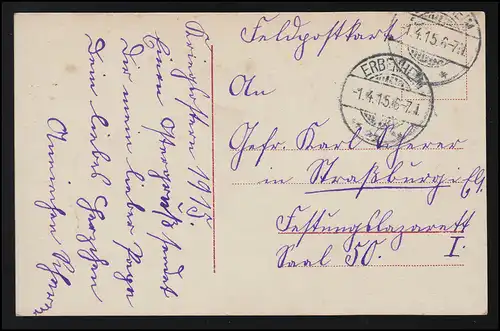 Feldpostkarte
ERBENHEIM
-1.4.15.6-7.N.
ERBENHEIM
-1.4.15.6-7.N.
An
Gefr. Karl Scherer
in Straßburg i/Els.
Festungslazarett I.
Saal 50.
Kriegsostern 1915.
Einen Ostergruß sendet
Dir mein lieber Papa
Dein liebes Herzchen
Annchen Scherer